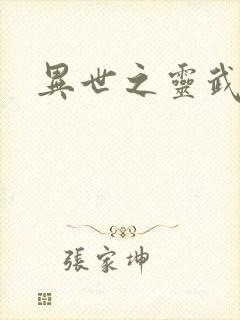 異世之靈武
張家坤